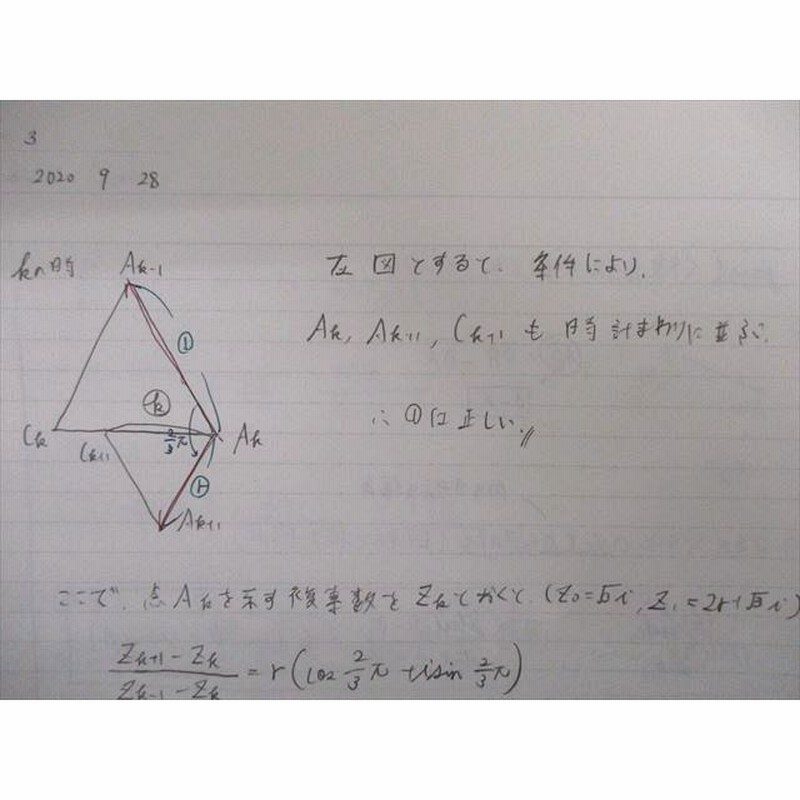 3
2020 9 28
kの時
A_{k-1}
①
ⓚ
C_k
C_{k+1}
2/3π
A_k
ⓡ
A_{k+1}
左図とすると、条件により、
A_k, A_{k+1}, C_{k+1} も時計まわりに並ぶ、
∴ ①は正しい。//
ここで、点A_kを示す複素数をZ_kとおくと、(Z_0=√3i, Z_1=2r+√3i)
(Z_{k+1}-Z_k)/(Z_{k-1}-Z_k) = r(cos 2/3π + isin 2/3π)